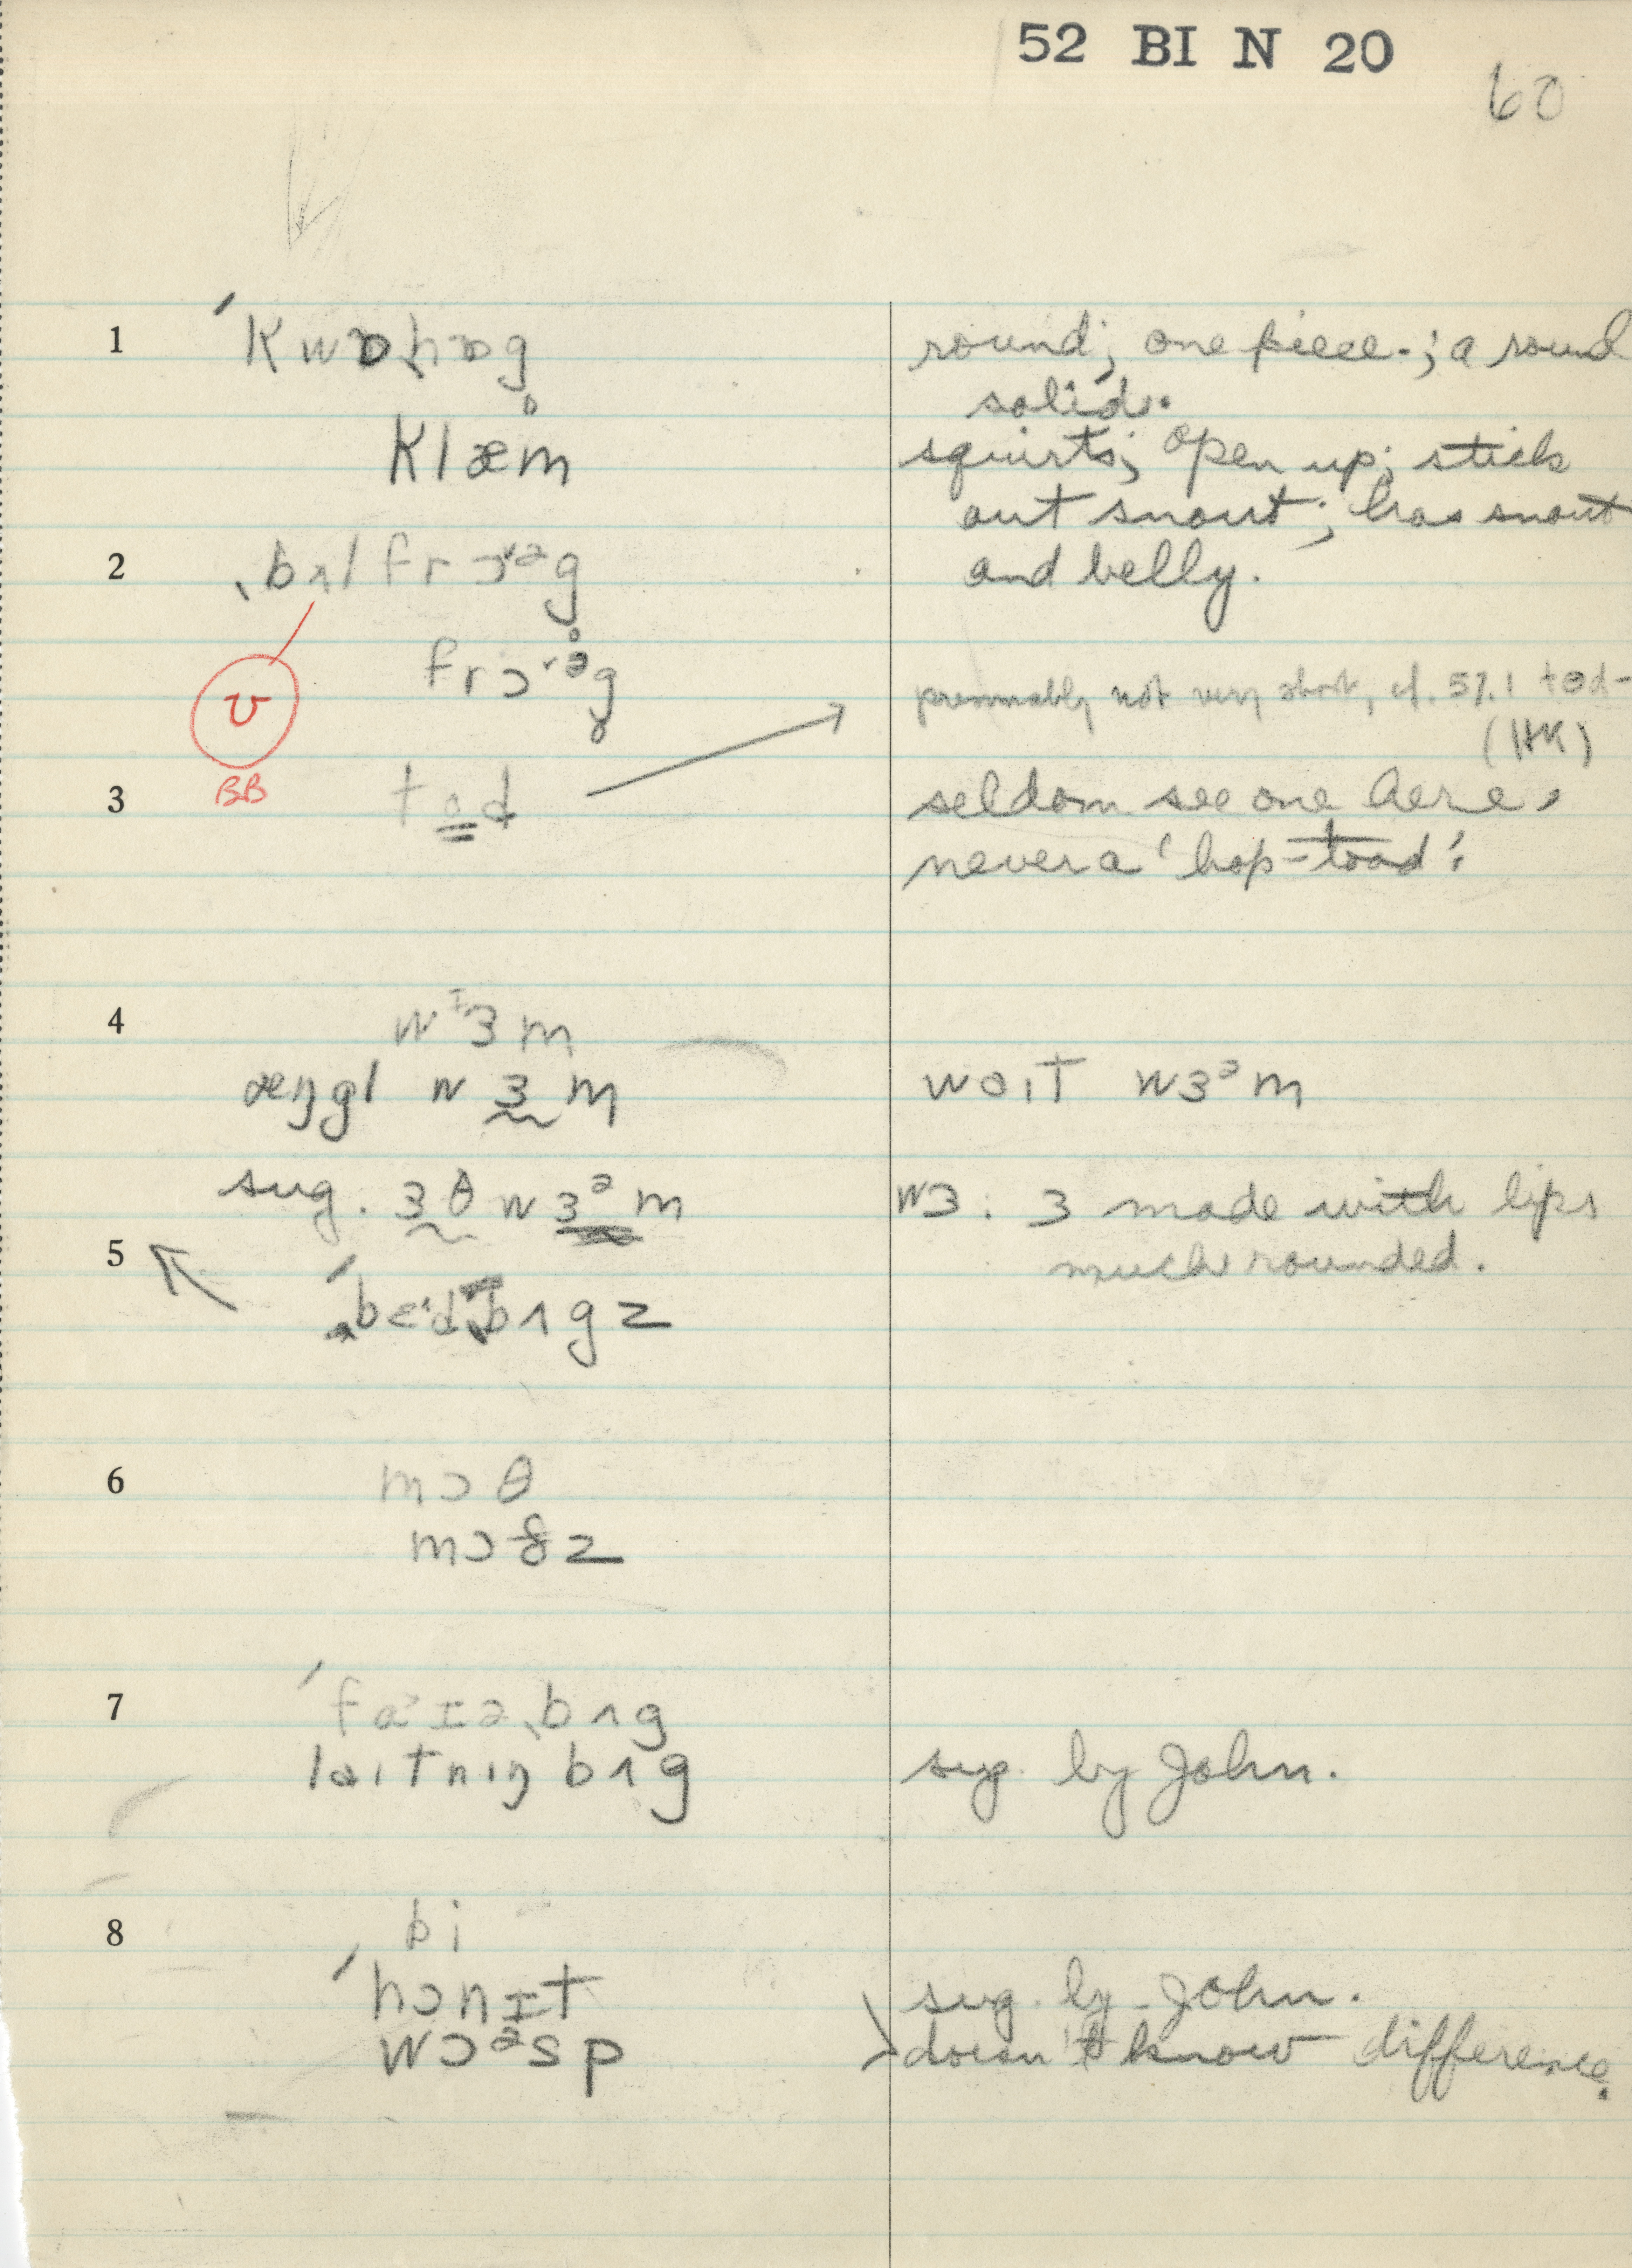 52 BI N 20
60
1 ˈkwɒˌhɒg̥ round; one piece.; a round
solid.
klæm squirts; open up; stick
out snout; has snout
2 ˌbʌlfrɔˇᵊg̥ and belly.
frɔˇᵊg̥
ʊ presumably not very short, cf. 57.1 tɵd-
(HK)
BB
3 tod seldom see one here,
never a 'hop-toad'.
4 wᶦɜm
æŋgl wɜm woɪt wɜᵊm
sug. ɜθ wɜᵊm wɜ: ɜ made with lips
much rounded.
5 ˈbɛˈdˌbʌgz
6 mɔθ
mɔðz
7 ˈfaˈɪəˌbʌg
laɪtnɪŋ bʌg sug. by John.
8 bi
ˈhɔnɪt sug. by John.
wɔᵊsp doesn't know difference.